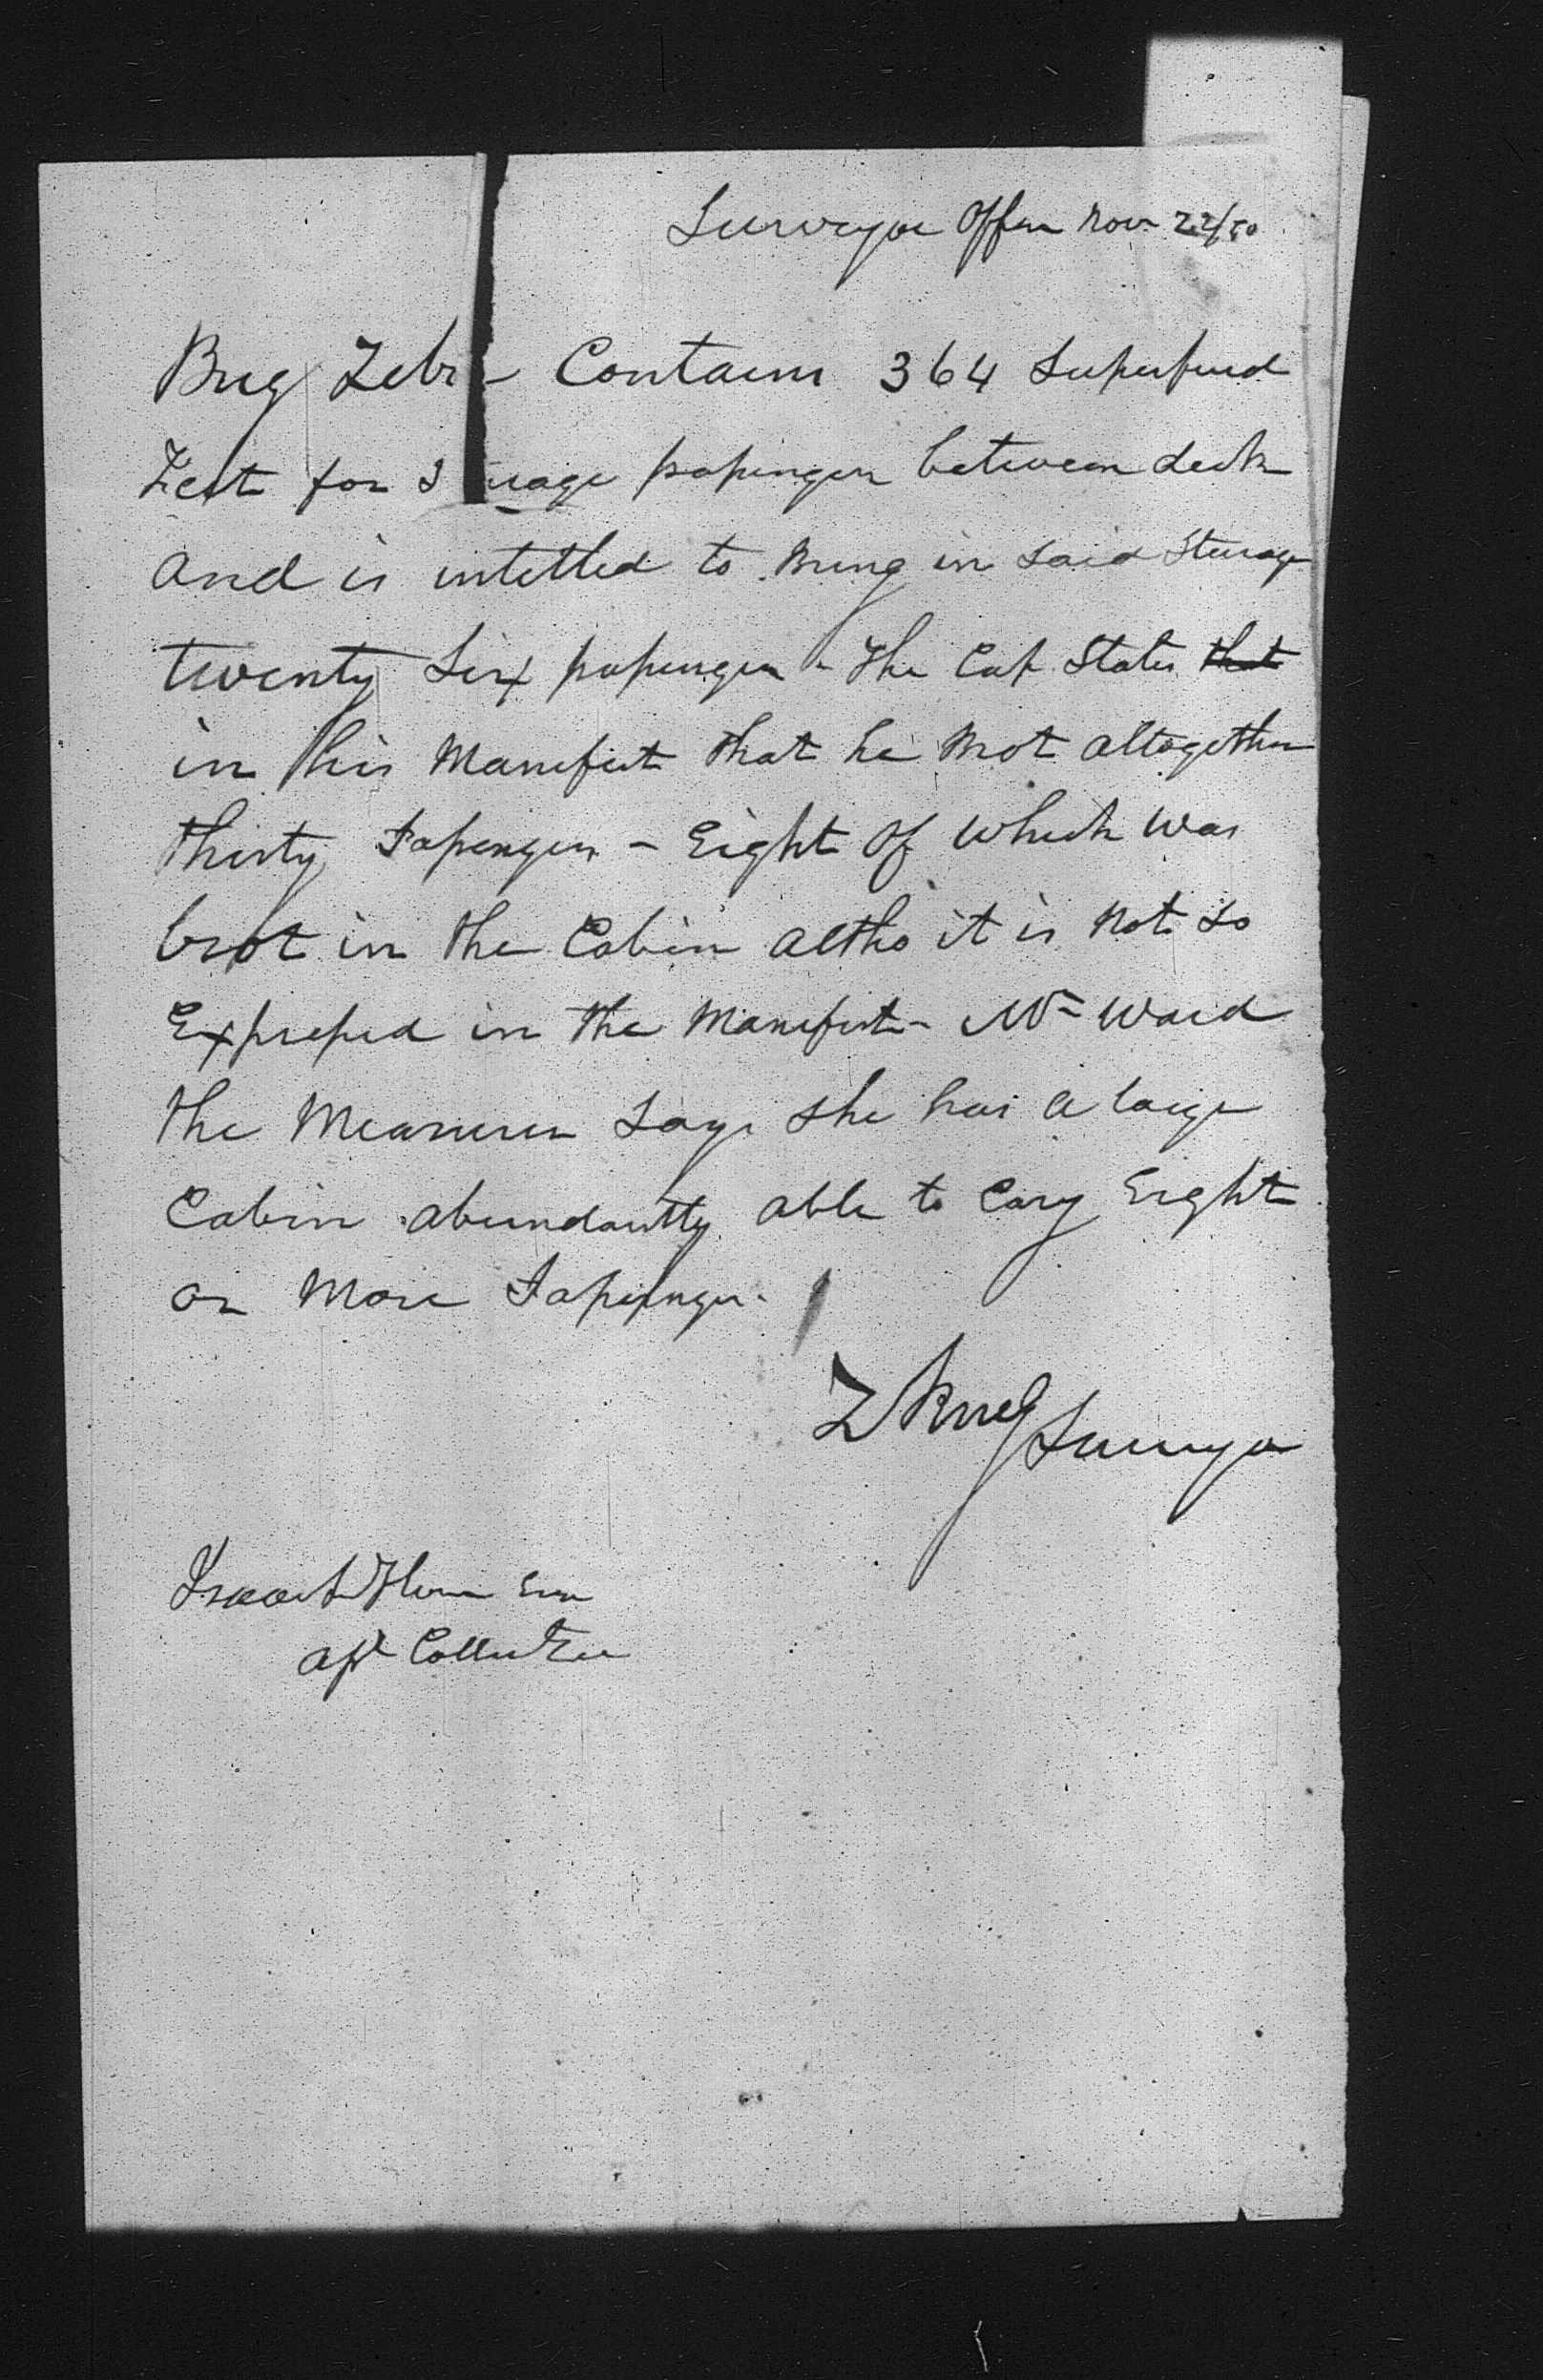 Surveyor Office Nov 22/50
Brig Zebr - Contains 364 Superficial
Feet for S erage passengers between deck
and is intitled to Bring in said Steerage
twenty Six passengers - The Cap States that
in his Manifest that he brot altogether
thirty Passengers - Eight of which was
brot in the Cabin altho it is not so
Expressed in the Manifest - Mr Ward
the Measurer Says she has a large
Cabin abundantly able to Cary Eight
or More Passengers.
Z Ring Surveyor
Esqr
Collector